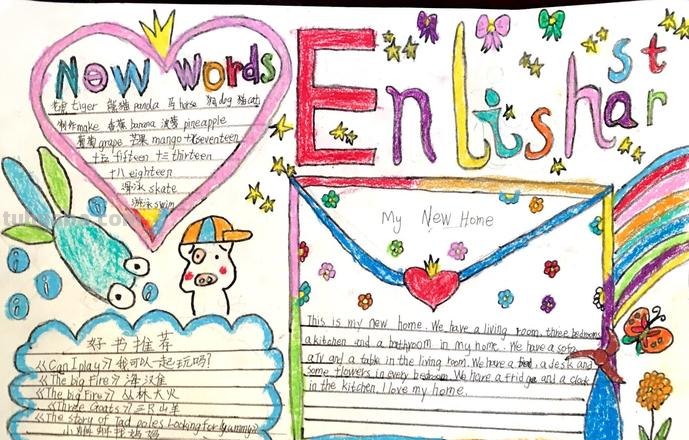 New words
老虎 tiger 熊猫 panda 马 horse 狗 dog 猫 cat
制作 make 香蕉 banana 菠萝 pineapple
葡萄 grape 芒果 mango 十七 seventeen
十五 fifteen 十三 thirteen
十八 eighteen
滑冰 skate
游泳 swim
Enlish
star
My New Home
This is my new home. We have a living room, three bedrooms
a kitchen and a bathroom in my home. We have a sofa
a TV and a table in the living room. We have a bed, a desk and
some flowers in every bedroom. We have a fridge and a clock
in the kitchen. I love my home.
好书推荐
《Can I play》我可以一起玩吗?
《The big Fire》
《The big Fire》丛林大火
《Three Goats》三只山羊
《The story of Tad poles Looking for Mummy》
小蝌蚪找妈妈